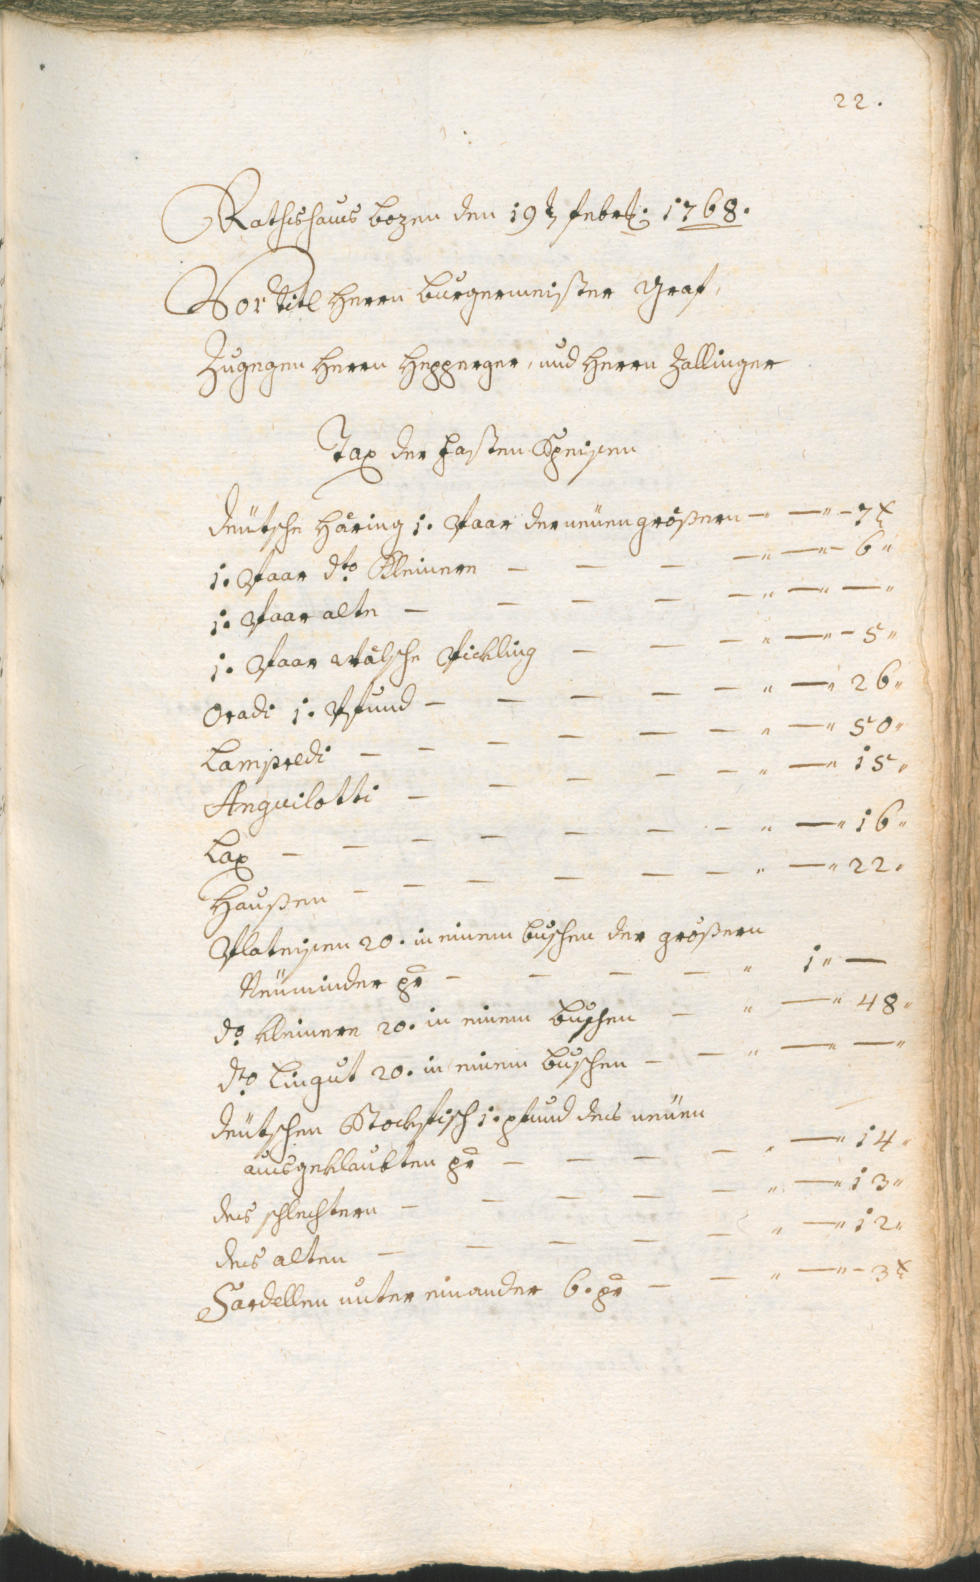 22.
Rathshaus Bozen den 19t Febr: 1768.
Vor titl Herrn Burgermeister Graf,
Zugegen Herrn Hepperger, und Herrn Zallinger
Tax der Fasten Speisen
Deütsche Häring 1. Paar der neüen größern — " — " — 7 x
1. Paar dto Kleinere — — — — " — " — 6 "
1. Paar alte — — — — — " — " — "
1. Paar wälsche Pickling — — — " — " — 5 "
Oradi 1. Pfund — — — — — " — " 26 "
Lampredi — — — — — — " — " 50 "
Anguilotti — — — — — " — " 15 "
Lax — — — — — — — " — " 16 "
Haußen — — — — — — " — " 22 "
Plateisen 20. in einem Buschen der größern
Neüminder pr — — — — " 1 " —
do kleinere 20. in einem Buschen — " — " 48 "
dto Lingut 20. in einem Buschen — — " — " — "
Deütschen Stockfisch 1. Pfund des neüen
ausgeklaubten pr — — — — " — " 14 "
des schlechtern — — — — — " — " 13 "
des alten — — — — — " — " 12 "
Sardellen unter einander 6. pr — — " — " — 3 x